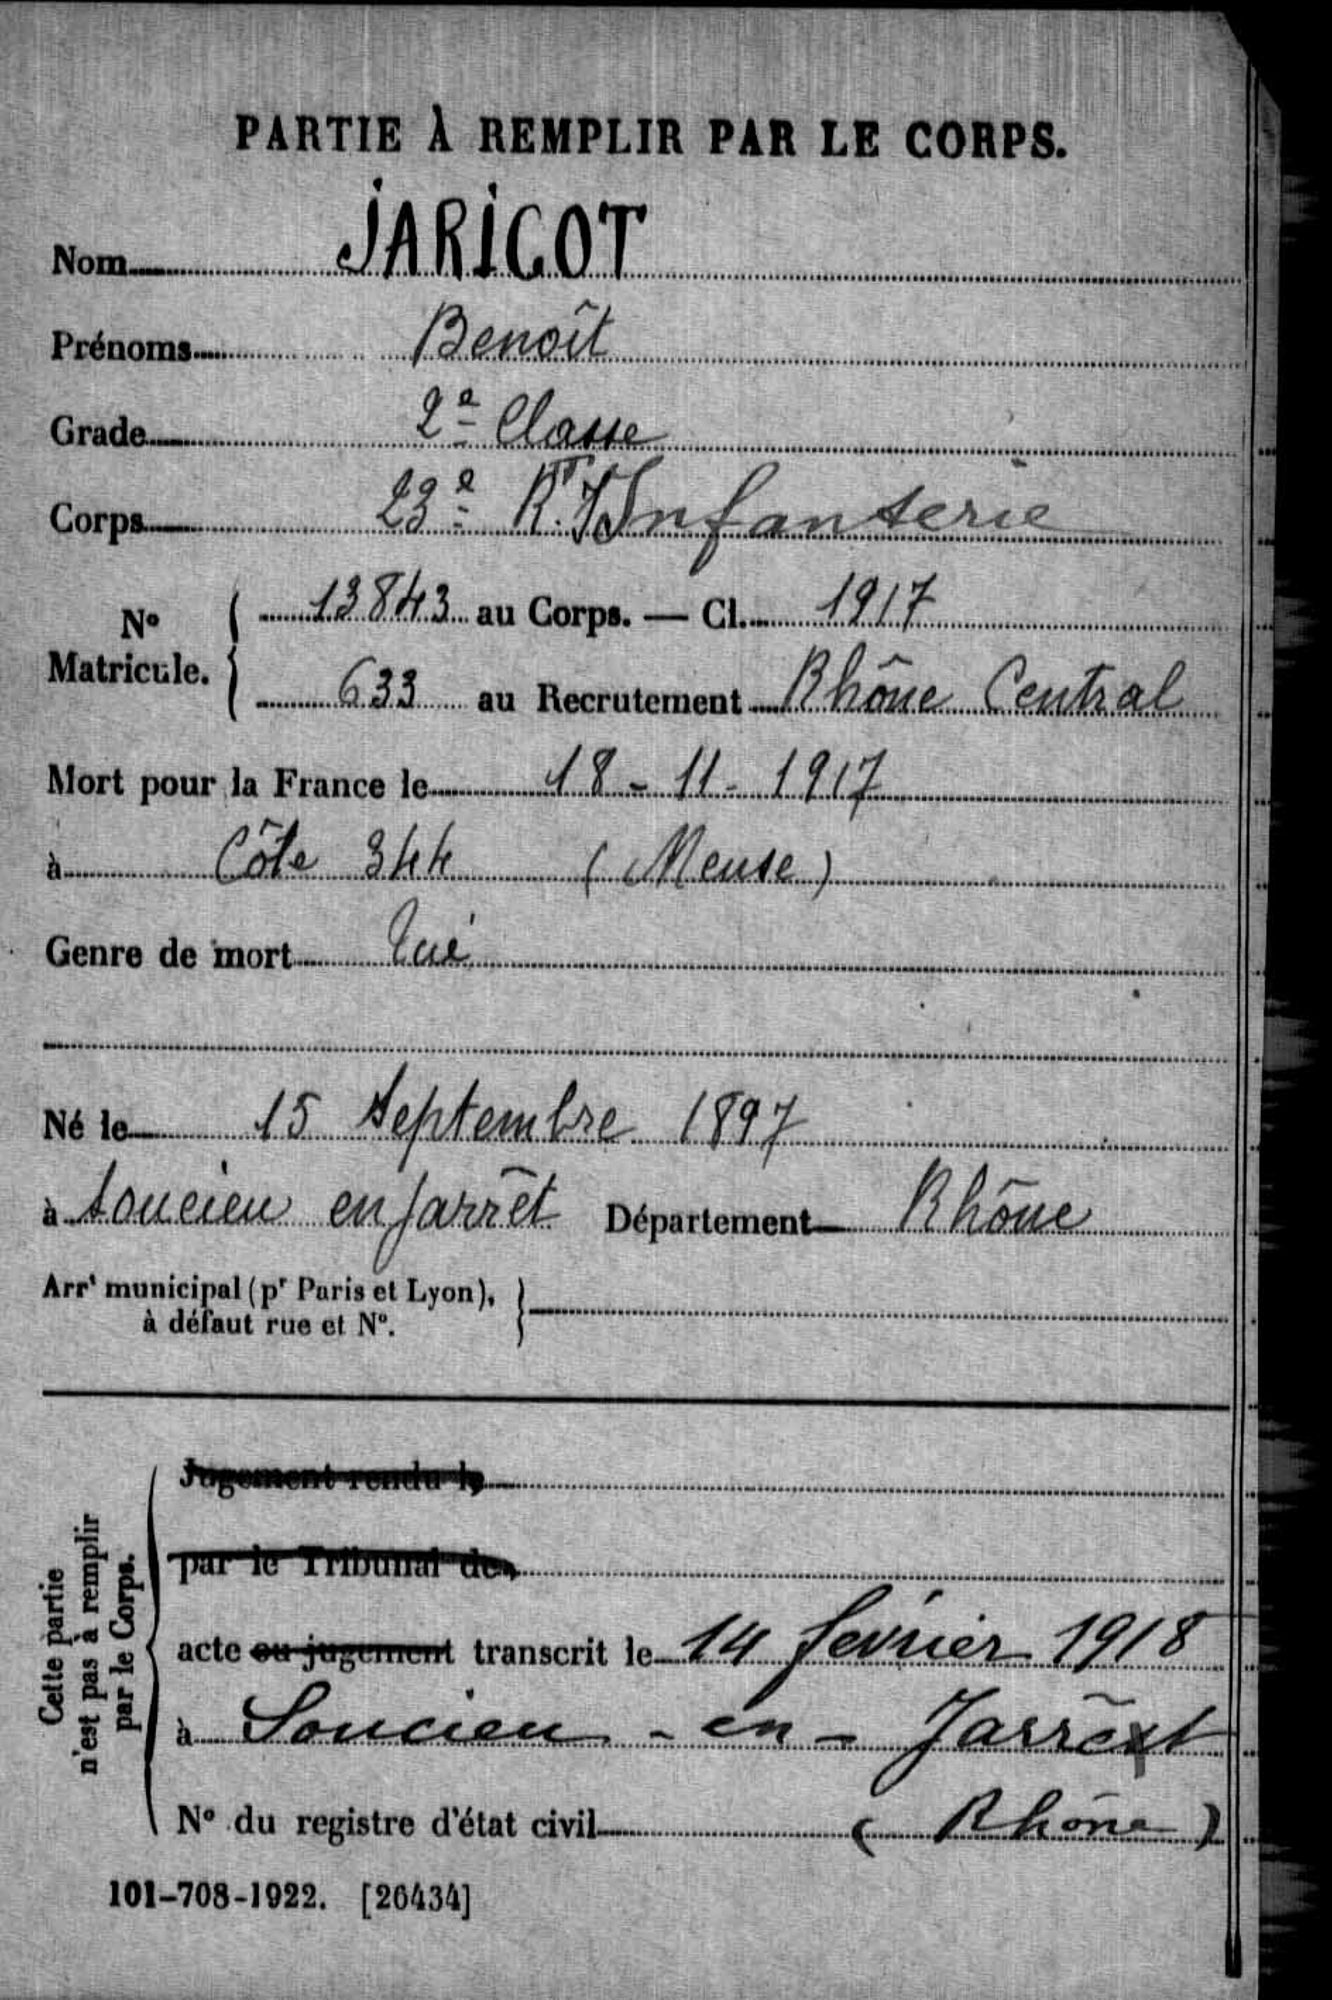 PARTIE À REMPLIR PAR LE CORPS.
Nom JARIGOT
Prénoms Benoît
Grade 2e Classe
Corps 23e Rt d'Infanterie
No Matricule. { 13843 au Corps. — Cl. 1917
633 au Recrutement Rhône Central
Mort pour la France le 18-11-1917
à Côte 344 (Meuse)
Genre de mort Tué
Né le 15 Septembre 1897
à Soucieu en Jarrêt Département Rhône
Arrt municipal (pr Paris et Lyon), }
à défaut rue et No.
Cette partie
n'est pas à remplir
par le Corps.
Jugement rendu le
par le Tribunal de
acte ou jugement transcrit le 14 février 1918
à Soucieu-en-Jarrêt
No du registre d'état civil (Rhône)
101-708-1922. [26434]